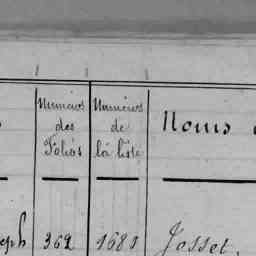 Numéros Numéros Noms
des de
Folios la liste
eph 362 1681 Josset.